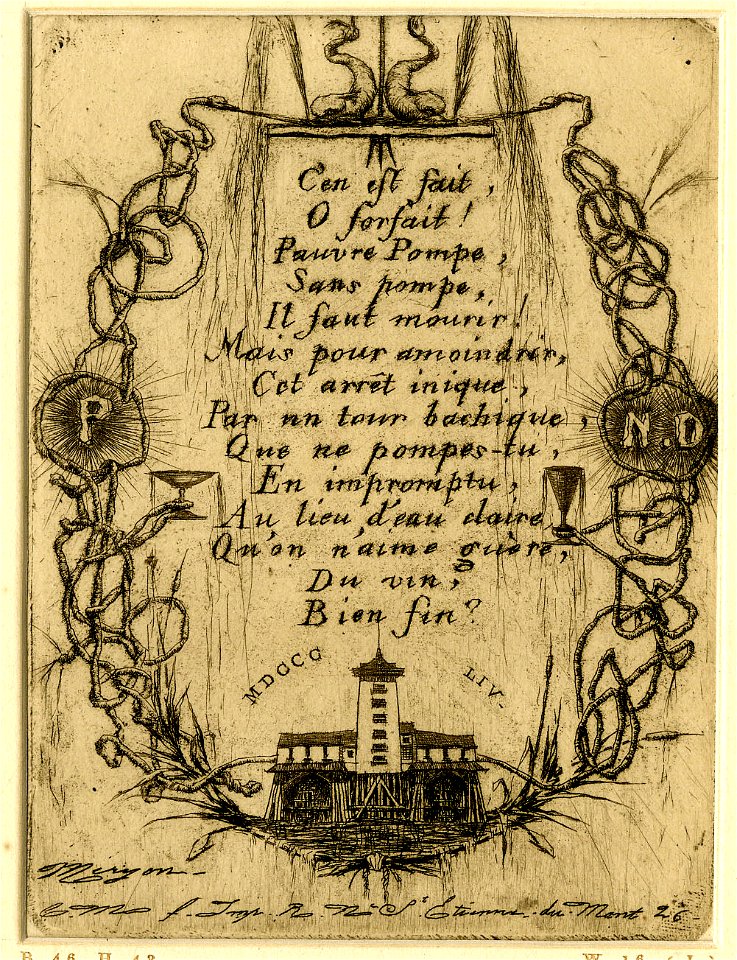 Cen est fait,
O forfait!
Pauvre Pompe,
Sans pompe,
Il faut mourir!
Mais pour amoindrir,
Cet arrêt inique,
Par un tour bachique,
Que ne pompes-tu,
En impromptu,
Au lieu d'eau claire
Qu'on n'aime guère,
Du vin,
Bien fin?
P
N.D
MDCCC LIV-
Meryon
C. M. f. Imp. R. Ne St Etienne-du-Mont 26-